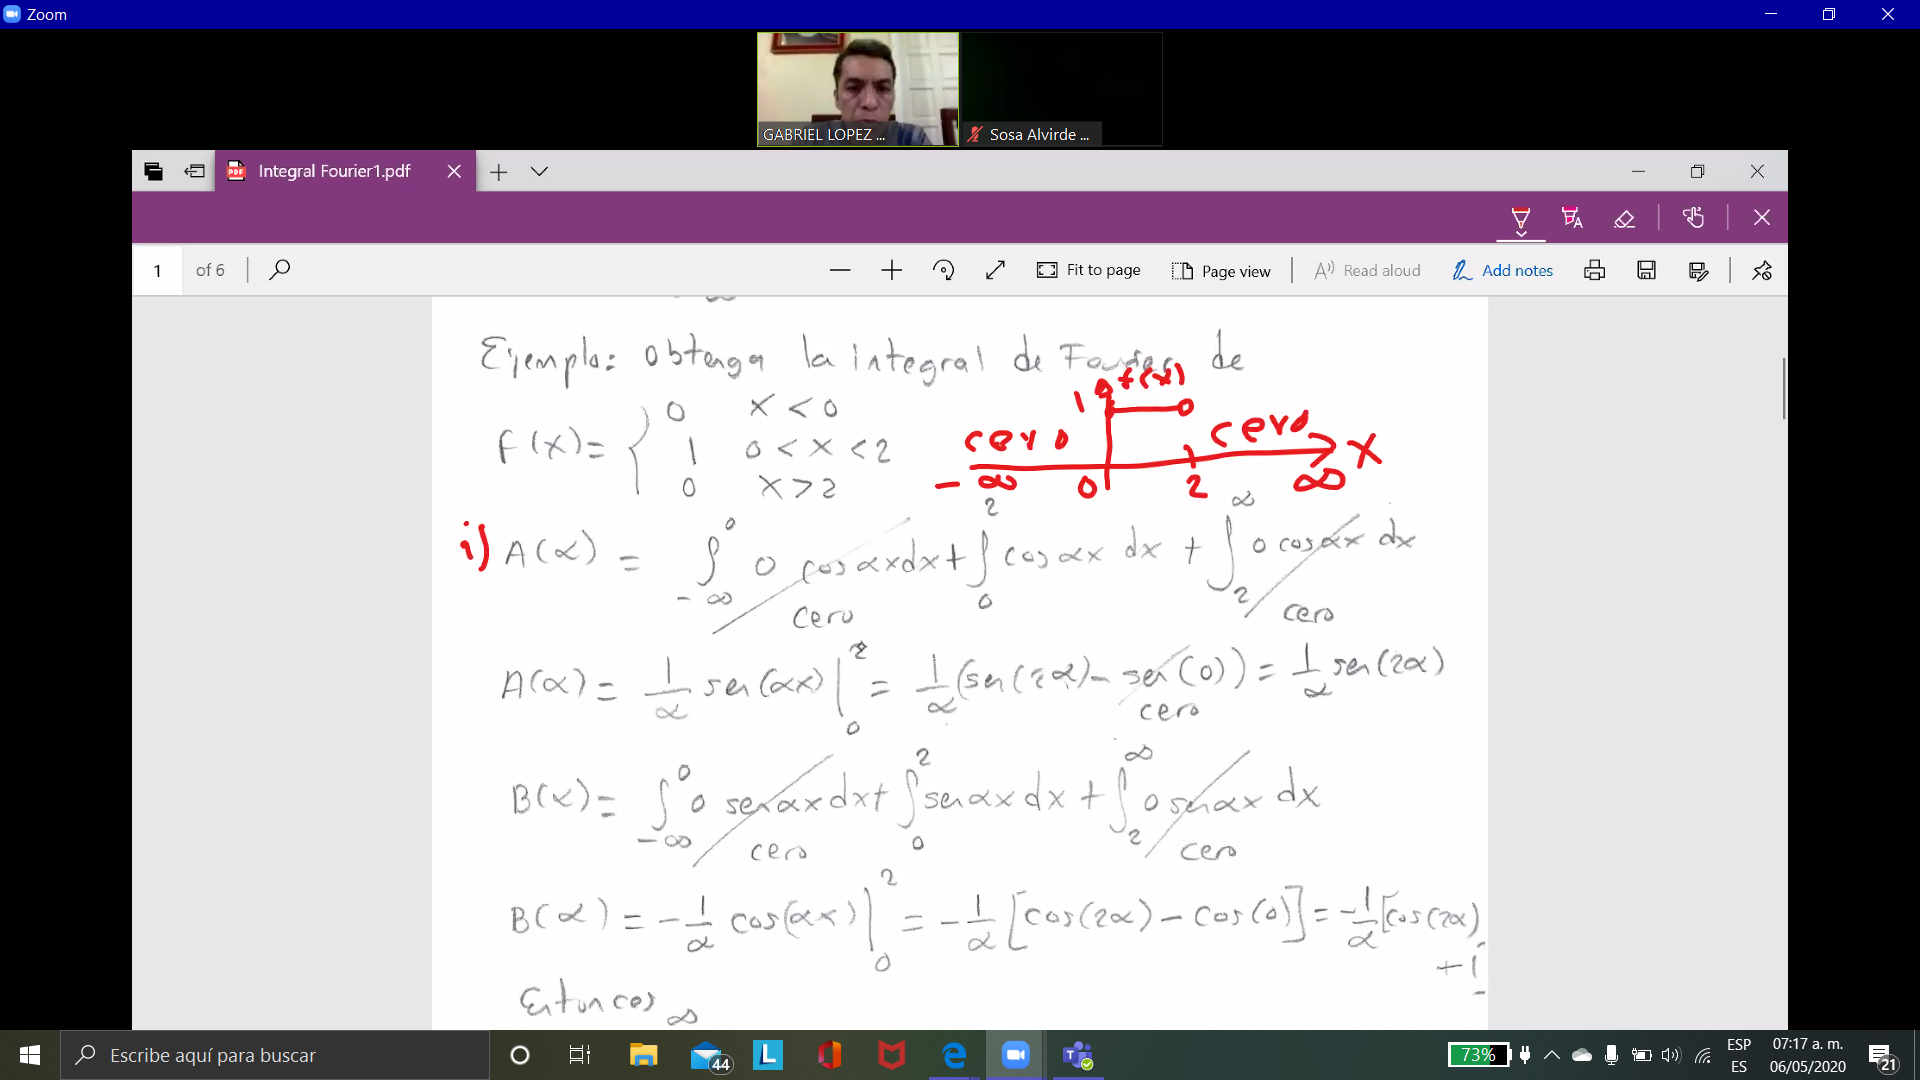 Zoom
GABRIEL LOPEZ ...
Sosa Alvirde ...
Integral Fourier1.pdf
1 of 6
Fit to page
Page view
Read aloud
Add notes
Ejemplo: Obtenga la integral de Fourier de
f(x)
1
F(x)= { 0 x < 0
1 0 < x < 2
0 x > 2
cero cero x
- ∞ 0 2 ∞
i) A(α) = ∫_{-∞}^{0} 0 cos αx dx + ∫_{0}^{2} cos αx dx + ∫_{2}^{∞} 0 cos αx dx
cero cero
A(α) = 1/α sen(αx) |_{0}^{2} = 1/α (sen(2α) - sen(0)) = 1/α sen(2α)
cero
B(α) = ∫_{-∞}^{0} 0 sen αx dx + ∫_{0}^{2} sen αx dx + ∫_{2}^{∞} 0 sen αx dx
cero cero
B(α) = -1/α cos(αx) |_{0}^{2} = -1/α [cos(2α) - cos(0)] = -1/α [cos(2α)
+1
Entonces
∞
Escribe aquí para buscar
44
73%
ESP
ES
07:17 a. m.
06/05/2020
21